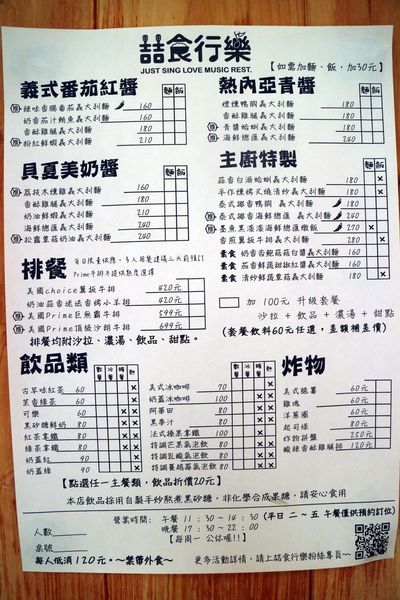 喆食行樂
JUST SING LOVE MUSIC REST.
【如需加麵、飯，加30元】
義式番茄紅醬 麵 飯
推 辣味香腸番茄義大利麵 160
奶香茄汁鮪魚義大利麵 160
香酥雞腿義大利麵 180
推 粉紅鮮蝦義大利麵 210
貝夏美奶醬 麵 飯
推 蒜技木燻雞義大利麵 160
香酥雞腿義大利麵 180
奶油鮮蝦義大利麵 210
海鮮總匯義大利麵 240
推 松露蕈菇奶油義大利麵 210
熱內亞青醬 麵 飯
煙燻鴨胸義大利麵 180
香酥雞腿義大利麵 180
推 青醬蛤蜊義大利麵 180
推 海鮮總匯義大利麵 240
主廚特製 麵 飯
蒜香白酒蛤蜊義大利麵 180
手作燻烤叉燒清炒義大利麵 180
推 泰式椒香鴨胸 義大利麵 180
推 泰式椒香海鮮總匯 義大利麵 240
推 墨魚黑漆漆海鮮總匯燉飯 270
香煎翼板牛排義大利麵 280
素食 奶香杏鮑菇菇白醬義大利麵 160
素食 茄香鮮蔬甜椒紅醬義大利麵 160
素食 清炒鮮蔬蕈菇義大利麵 160
排餐
每日限量供應，多人用餐建議三天前預訂
Prime牛排不提供熟度選擇
美國choice翼板牛排 420元
奶油蒜香迷迭香烤小羊排 420元
推 美國Prime巨無霸牛排 599元
推 美國Prime頂級沙朗牛排 699元
排餐均附沙拉、濃湯、飲品、甜點。
加 100元 升級套餐
沙拉 + 飲品 + 濃湯 + 甜點
(套餐飲料60元任選，差額補差價)
飲品類
古早味紅茶 60
茉香綠茶 60
可樂 60
黑砂糖鮮奶 80
紅茶拿鐵 80
綠茶拿鐵 80
奶蓋紅 90
奶蓋綠 90
美式冰咖啡 70
奶蓋冰咖啡 100
阿華田 80
黑麥汁 80
法式榛果拿鐵 100
特調芒果氣泡飲 80
特調乳酸氣泡飲 80
特調蔓越莓氣泡飲 80
炸物
美式脆薯 60元
雞塊 60元
洋蔥圈 60元
起司條 80元
炸物拼盤 250元
酸辣香酥雞腿排 120元
【點選任一主餐類，飲品折價20元】
本店飲品採用自製手炒熬煮黑砂糖，非化學合成果糖，請安心食用
營業時間： 午餐 11：30～14：30 (平日 二～五 午餐僅供預約訂位)
晚餐 17：30～22：00
【每周一 公休喔!!】
人數
桌號
每人低消120元。～禁帶外食～
更多活動詳情，請上喆食行樂粉絲專頁～